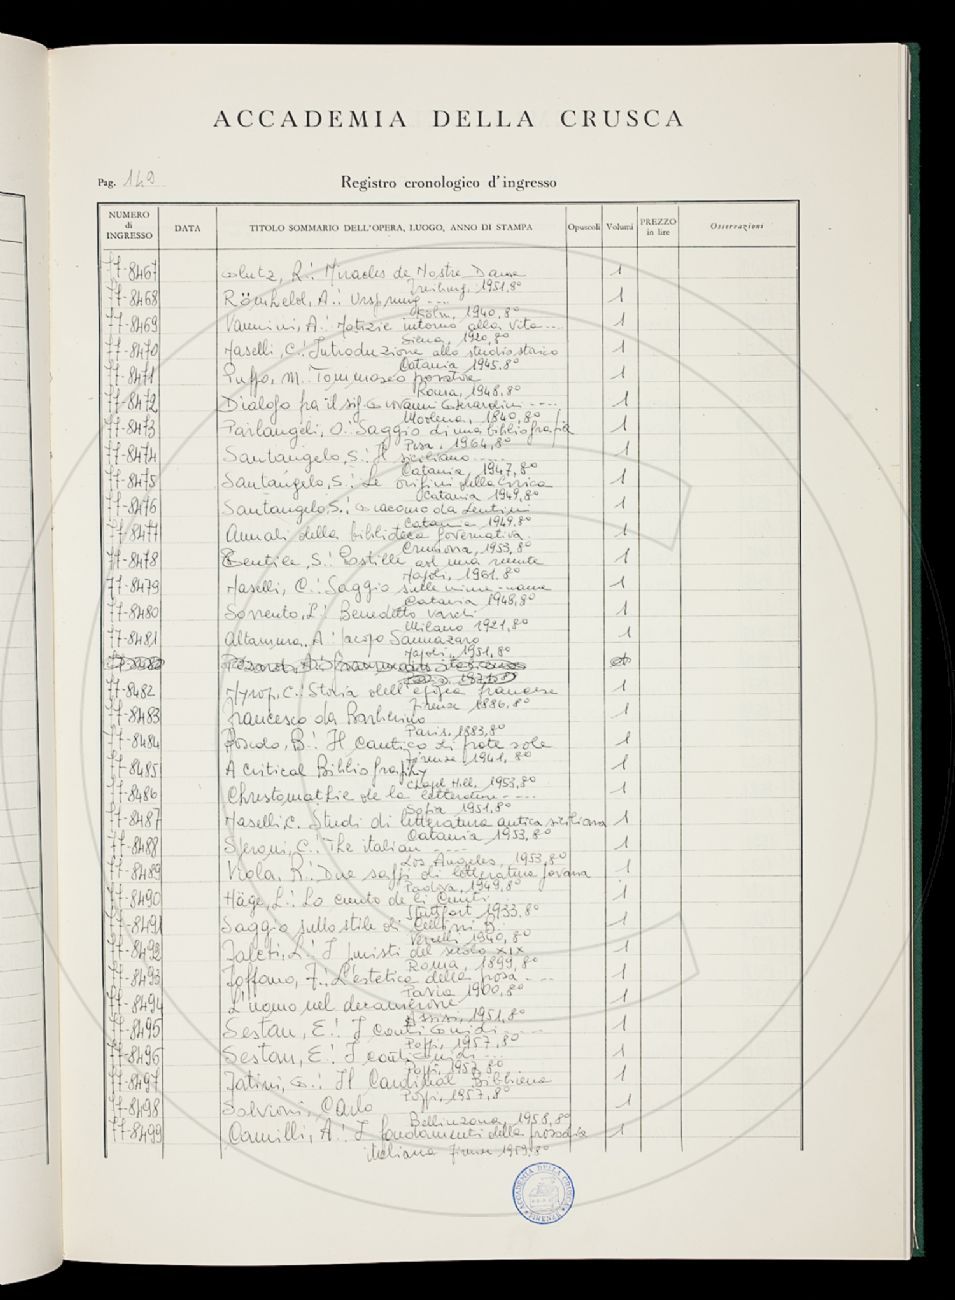 ACCADEMIA DELLA CRUSCA
Pag. 149
Registro cronologico d'ingresso
NUMERO di INGRESSO DATA TITOLO SOMMARIO DELL'OPERA, LUOGO, ANNO DI STAMPA Opuscoli Volumi PREZZO in lire Osservazioni
77-8467 Glutz, R.: Miracles de Nostre Dame 1
Freiburg, 1951, 8°
77-8468 Römheld, A.: Ursprung --- 1
Köln, 1940, 8°
77-8469 Vannini, A.: Notizie intorno alla vita --- 1
Siena, 1920, 8°
77-8470 Naselli, C.: Introduzione allo studio storico 1
Catania 1945. 8°
77-8471 Puppo, M. Tommaseo prosatore 1
Roma, 1948, 8°
77-8472 Dialogo fra il sig. Giovanni Gherardini ---- 1
Modena, 1840, 8°
77-8473 Parlangèli, O.: Saggio di una bibliografia 1
Pisa, 1964, 8°
77-8474 Santangelo, S.: Il siciliano ----- 1
Catania, 1947, 8°
77-8475 Santangelo, S.: Le origini della lirica 1
Catania 1949, 8°
77-8476 Santangelo, S.: Giacomo da Lentini 1
Catania 1949, 8°
77-8477 Annali della biblioteca governativa. 1
Cremona, 1953, 8°
77-8478 Gentile, S.: Postille ad una recente 1
Napoli, 1961. 8°
77-8479 Naselli, C.: Saggio sulle ninne-nanne 1
Catania 1948, 8°
77-8480 Sorrento, L.: Benedetto Varchi 1
Milano 1921, 8°
77-8481 Altamura, A.: Jacopo Sannazaro 1
Napoli, 1951, 8°
77-8482 Nyrop, C.: Storia dell'epopea francese 1
Firenze 1886, 8°
77-8483 Francesco da Barberino 1
Paris, 1883, 8°
77-8484 Foscolo, B.: Il Cantico di frate sole 1
Firenze, 1941, 8°
77-8485 A critical Bibliography 1
Chapel Hill, 1953, 8°
77-8486 Chrestomathie de la litterature ---- 1
Sofia 1951, 8°
77-8487 Naselli C. Studi di letteratura antica siciliana 1
Catania 1953, 8°
77-8488 Speroni, C.: The italian ---- 1
Los Angeles, 1953, 8°
77-8489 Viola, R.: Due saggi di letteratura pavana 1
Padova, 1949, 8°
77-8490 Häge, L.: Lo cunto de li Cunti 1
Stuttgart 1933, 8°
77-8491 Saggio sullo stile di Cellini B. 1
Vercelli 1940, 8°
77-8492 Faleti, L.: I puristi del secolo XIX 1
Roma, 1899, 8°
77-8493 Foffano, F.: L'estetica della prosa --- 1
Pavia 1900, 8°
77-8494 L'uomo nel decamerone 1
Assisi, 1951, 8°
77-8495 Sestan, E.: I conti Guidi ---- 1
Poppi, 1957, 8°
77-8496 Sestan, E.: I conti Guidi --- 1
Poppi, 1957, 8°
77-8497 Fatini, G.: Il Cardinal Bibbiena 1
Poppi, 1957, 8°
77-8498 Salvioni, Carlo 1
Bellinzona, 1958, 8°
77-8499 Camilli, A.: I fondamenti della prosodia 1
italiana Firenze 1959, 8°
ACCADEMIA DELLA CRUSCA
FIRENZE